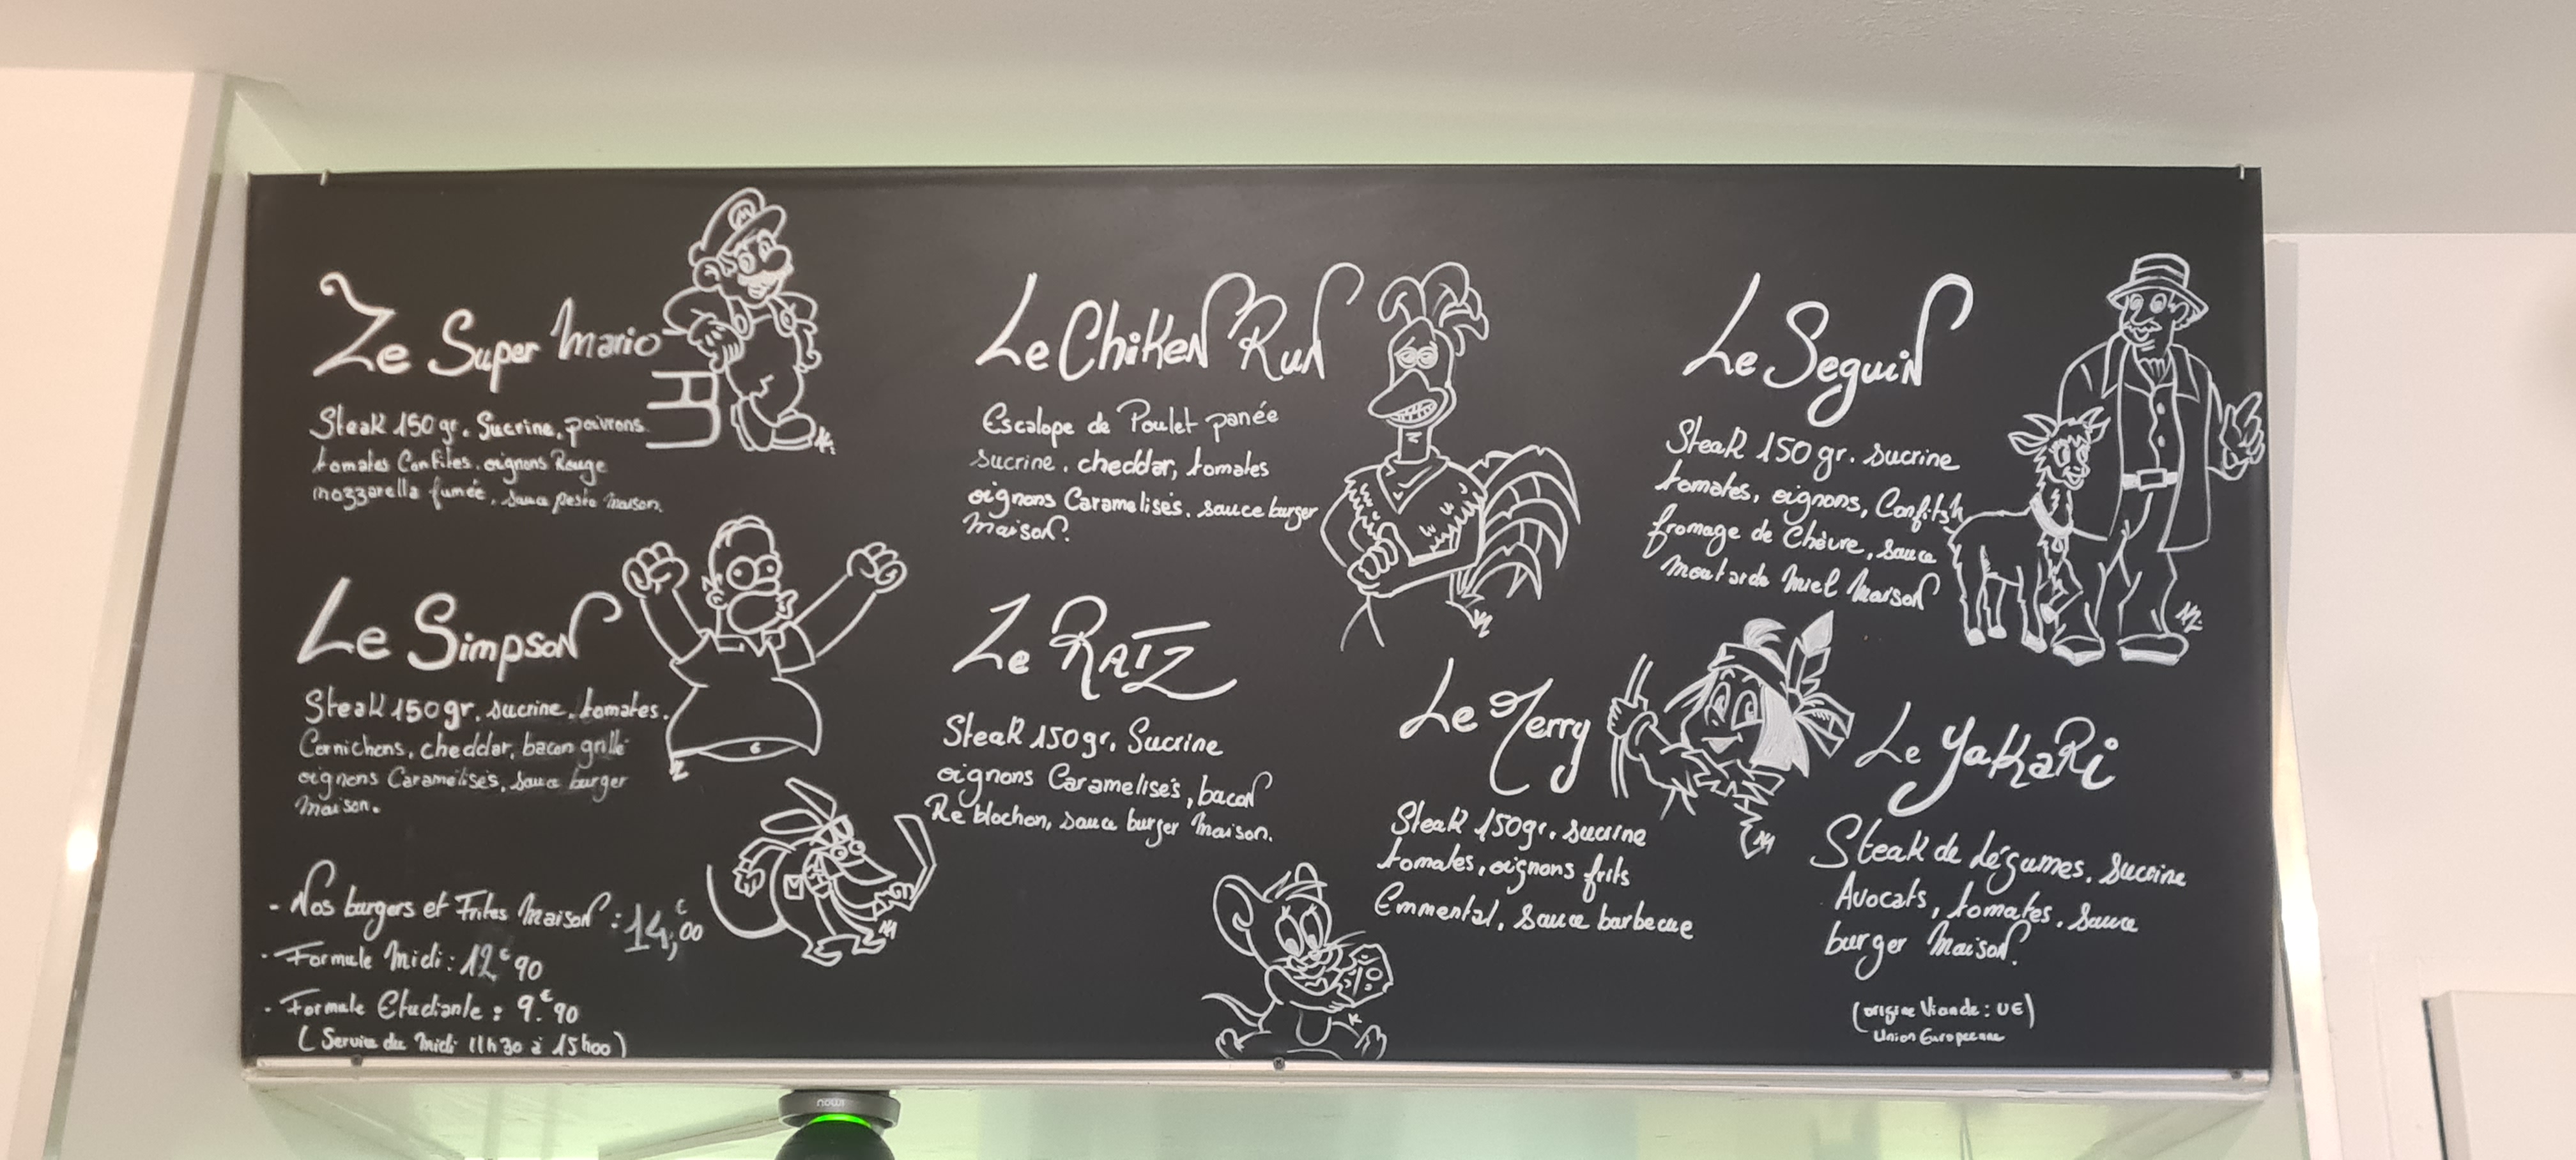 Ze Super Mario
Steak 150 gr. Sucrine, poivrons
tomates Confites. oignons Rouge
mozzarella fumée, sauce pesto maison.
Le Simpson
Steak 150 gr. sucrine. tomates.
Cornichons, cheddar, bacon grillé
oignons Caramelisés, sauce burger
maison.
- Nos burgers et Frites Maison : 14,€00
- Formule Midi : 12€90
- Formule Etudiante : 9.€90
(Service du Midi 11h30 à 15h00)
Le Chiken Run
Escalope de Poulet panée
sucrine. cheddar, tomates
oignons Caramelisés. sauce burger
maison.
Le RATZ
Steak 150 gr. Sucrine
oignons Caramelisés, bacon
Reblochon, sauce burger maison.
Le Seguin
Steak 150 gr. sucrine
tomates, oignons, Confits
fromage de Chèvre, sauce
moutarde miel maison
Le Jerry
Steak 150gr. sucrine
tomates, oignons frits
Emmental, sauce barbecue
Le YaKaRi
Steak de légumes. sucrine
Avocats, tomates. sauce
burger maison.
(origine Viande : UE)
Union Européenne
nowi